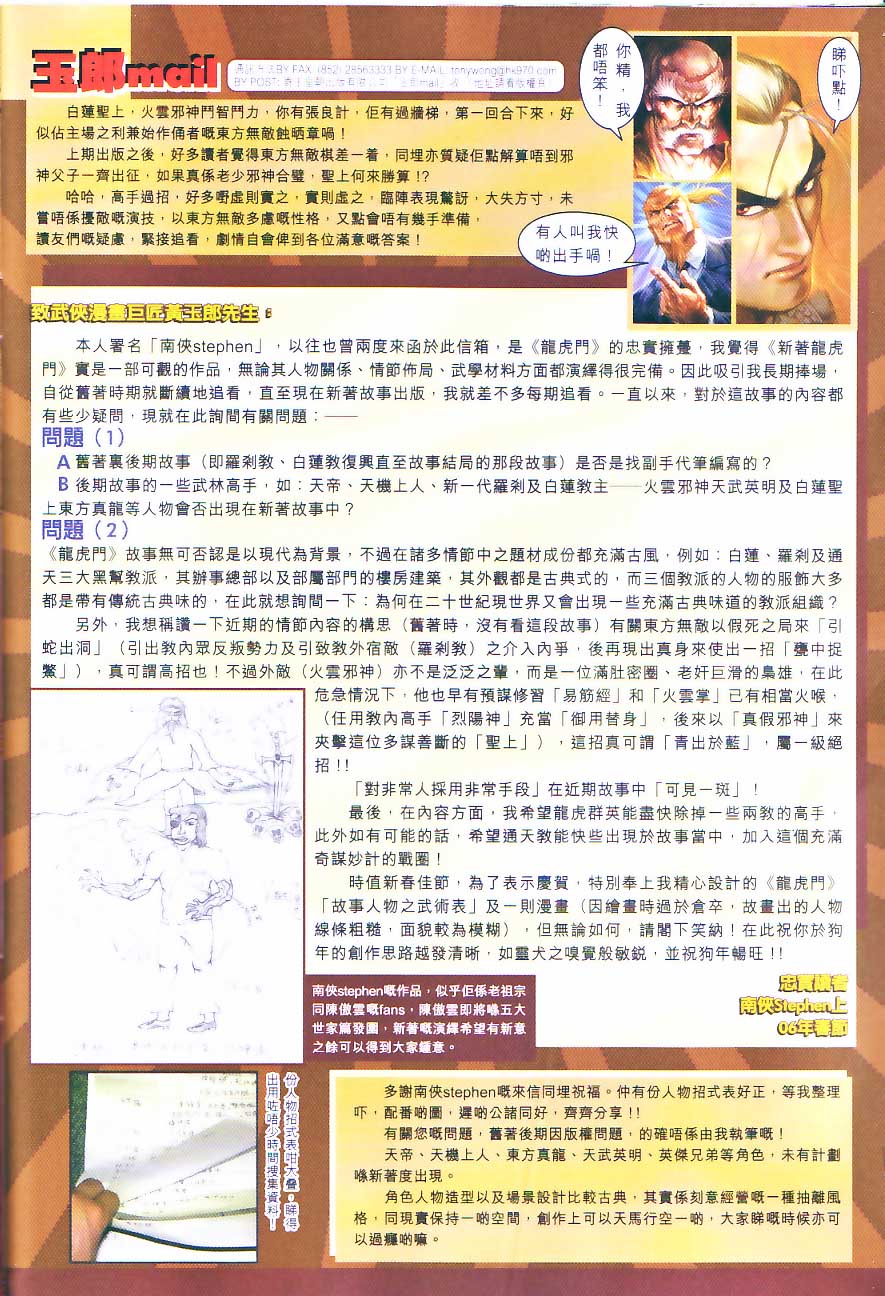 玉郎mail
通訊方法BY FAX: (852) 28563333 BY E-MAIL: tonywong@hk970.com
白蓮聖上，火雲邪神鬥智鬥力，你有張良計，佢有過牆梯，第一回合下來，好
似佔主場之利兼始作俑者嘅東方無敵蝕晒章喎！
上期出版之後，好多讀者覺得東方無敵棋差一着，同埋亦質疑佢點解算唔到邪
神父子一齊出征，如果真係老少邪神合璧，聖上何來勝算！?
哈哈，高手過招，好多嘢虛則實之，實則虛之，臨陣表現驚訝，大失方寸，未
嘗唔係擾敵嘅演技，以東方無敵多慮嘅性格，又點會唔有幾手準備，
讀友們嘅疑慮，緊接追看，劇情自會俾到各位滿意嘅答案！
你精，我
都唔笨！
睇吓點！
有人叫我快
啲出手喎！
致武俠漫畫巨匠黃玉郎先生：
本人署名「南俠stephen」，以往也曾兩度來函於此信箱，是《龍虎門》的忠實擁躉，我覺得《新著龍虎
門》實是一部可觀的作品，無論其人物關係、情節佈局、武學材料方面都演繹得很完備。因此吸引我長期捧場，
自從舊著時期就斷續地追看，直至現在新著故事出版，我就差不多每期追看。一直以來，對於這故事的內容都
有些少疑問，現就在此詢間有關問題：——
問題（1）
A 舊著裏後期故事（即羅剎教、白蓮教復興直至故事結局的那段故事）是否是找副手代筆編寫的？
B 後期故事的一些武林高手，如：天帝、天機上人、新一代羅剎及白蓮教主——火雲邪神天武英明及白蓮聖
上東方真龍等人物會否出現在新著故事中？
問題（2）
《龍虎門》故事無可否認是以現代為背景，不過在諸多情節中之題材成份都充滿古風，例如：白蓮、羅剎及通
天三大黑幫教派，其辦事總部以及部屬部門的樓房建築，其外觀都是古典式的，而三個教派的人物的服飾大多
都是帶有傳統古典味的，在此就想詢問一下：為何在二十世紀現世界又會出現一些充滿古典味道的教派組織？
另外，我想稱讚一下近期的情節內容的構思（舊著時，沒有看這段故事）有關東方無敵以假死之局來「引
蛇出洞」（引出教內眾反叛勢力及引致教外宿敵（羅剎教）之介入內爭，後再現出真身來使出一招「甕中捉
鱉」），真可謂高招也！不過外敵（火雲邪神）亦不是泛泛之輩，而是一位滿肚密圈、老奸巨滑的梟雄，在此
危急情況下，他也早有預謀修習「易筋經」和「火雲掌」已有相當火喉，
（任用教內高手「烈陽神」充當「御用替身」，後來以「真假邪神」來
夾擊這位多謀善斷的「聖上」），這招真可謂「青出於藍」，屬一級絕
招！!
「對非常人採用非常手段」在近期故事中「可見一斑」！
最後，在內容方面，我希望龍虎群英能盡快除掉一些兩教的高手，
此外如有可能的話，希望通天教能快些出現於故事當中，加入這個充滿
奇謀妙計的戰圈！
時值新春佳節，為了表示慶賀，特別奉上我精心設計的《龍虎門》
「故事人物之武術表」及一則漫畫（因繪畫時過於倉卒，故畫出的人物
線條粗糙，面貌較為模糊），但無論如何，請閣下笑納！在此祝你於狗
年的創作思路越發清晰，如靈犬之嗅覺般敏銳，並祝狗年暢旺！!
忠實讀者
南俠Stephen上
06年春節
南俠stephen嘅作品，似乎佢係老祖宗
同陳傲雲嘅fans，陳傲雲即將喺五大
世家篇發圍，新著嘅演繹希望有新意
之餘可以得到大家鍾意。
份人物招式表咁大叠，睇得
出用咗唔少時間搜集資料！
多謝南俠stephen嘅來信同埋祝福。仲有份人物招式表好正，等我整理
吓，配番啲圖，遲啲公諸同好，齊齊分享！!
有關您嘅問題，舊著後期因版權問題，的確唔係由我執筆嘅！
天帝、天機上人、東方真龍、天武英明、英傑兄弟等角色，未有計劃
喺新著度出現。
角色人物造型以及場景設計比較古典，其實係刻意經營嘅一種抽離風
格，同現實保持一啲空間，創作上可以天馬行空一啲，大家睇嘅時候亦可
以過癮啲嘛。